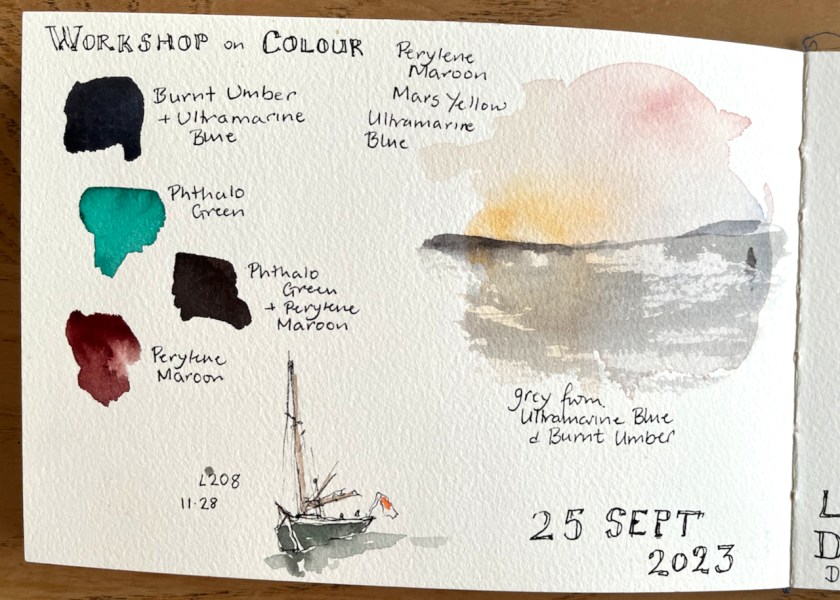 WORKSHOP on COLOUR
Burnt Umber
+ Ultramarine
Blue
Phthalo
Green
Phthalo
Green
+ Perylene
Maroon
Perylene
Maroon
Perylene
Maroon
Mars Yellow
Ultramarine
Blue
grey from
Ultramarine Blue
& Burnt Umber
L208
11.28
25 SEPT
2023
L
D
D